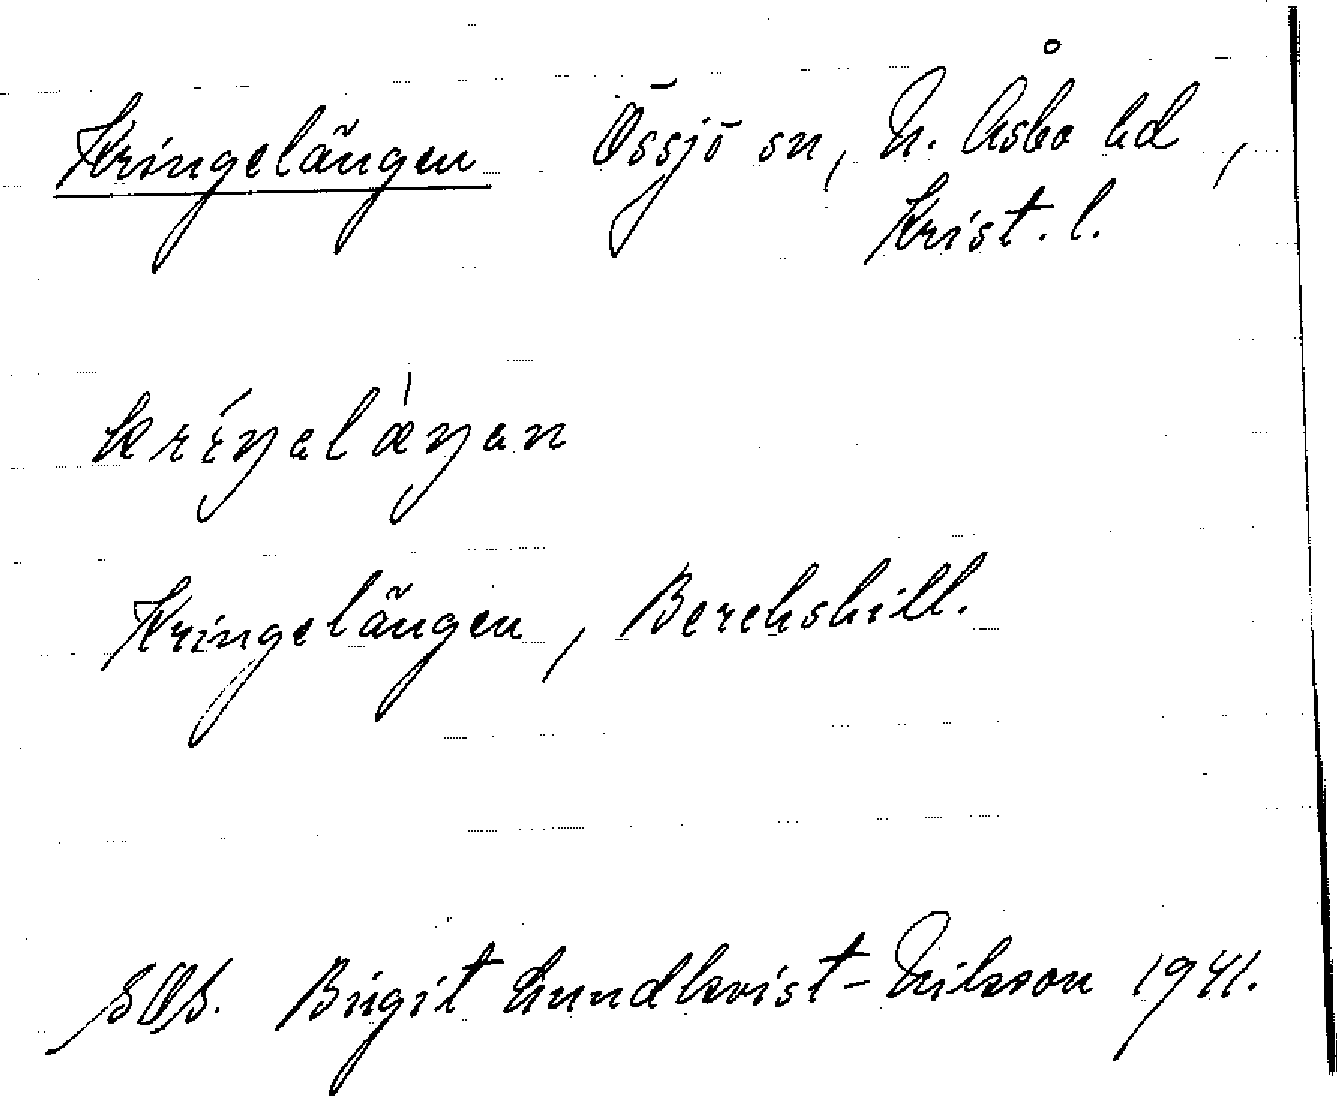 Kringelängen Össjö sn, N. Åsbo hd,
Krist. l.
kríŋəlæ̀ŋən
Kringelängen, Berehskill.
SOS. Birgit Lundkvist-Nilsson 1941.